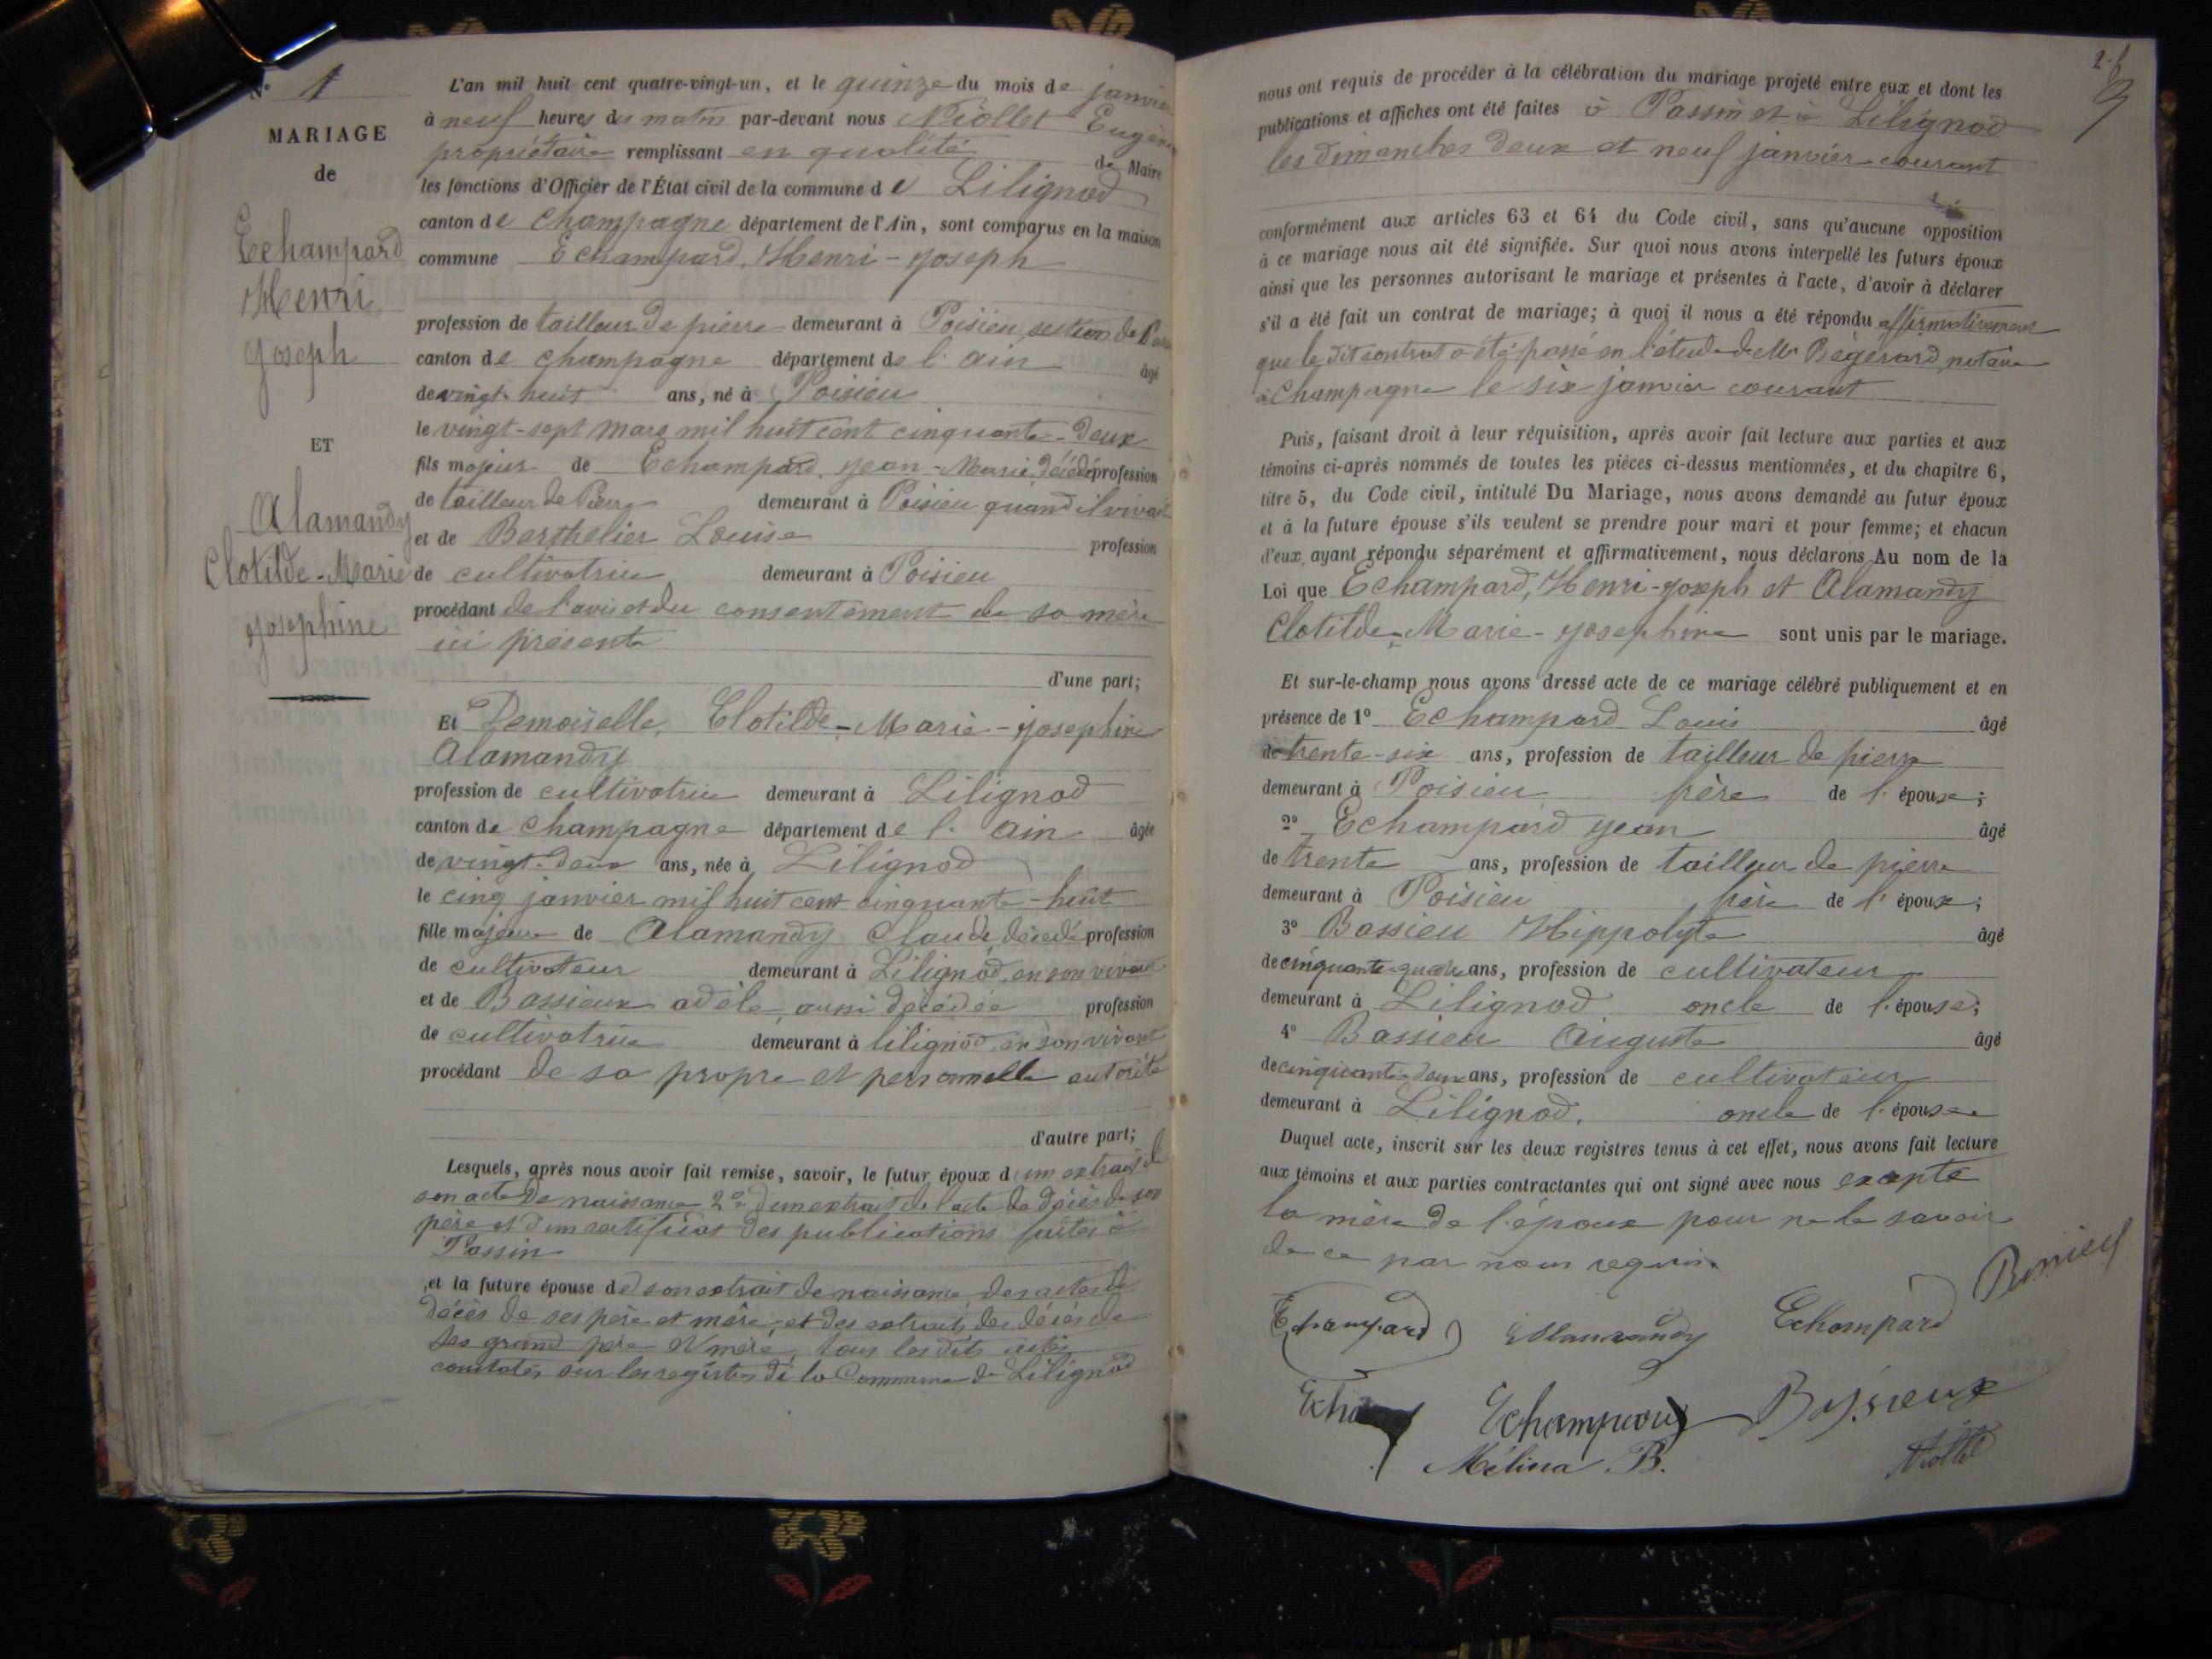 N° 1
MARIAGE
de
Echampard
Henri
Joseph
ET
Alamandy
Clotilde-Marie
Josephine
L'an mil huit cent quatre-vingt-un, et le quinze du mois de janvier
à neuf heures du matin par-devant nous Niollet Eugène
propriétaire remplissant en qualité de Maire
les fonctions d'Officier de l'État civil de la commune de Lilignod
canton de Champagne département de l'Ain, sont comparus en la maison
commune Echampard, Henri-Joseph
profession de tailleur de pierre demeurant à Poisieu section de
canton de Champagne département de l'Ain âgé
de vingt-huit ans, né à Poisieu
le vingt-sept mars mil huit cent cinquante-deux
fils majeur de Echampard, Jean-Marie, décédé profession
de tailleur de Pierre demeurant à Poisieu quand il vivait
et de Berthelier Louise profession
de cultivatrice demeurant à Poisieu
procédant de l'avis et du consentement de sa mère
ici présente
d'une part;
Et Demoiselle, Clotilde-Marie-Josephine
Alamandy
profession de cultivatrice demeurant à Lilignod
canton de Champagne département de l'Ain âgée
de vingt-deux ans, née à Lilignod
le cinq janvier mil huit cent cinquante-huit
fille majeure de Alamandy Claude, décédé profession
de cultivateur demeurant à Lilignod, en son vivant
et de Bassieux adèle, aussi décédée profession
de cultivatrice demeurant à lilignod, en son vivant
procédant de sa propre et personnelle autorité
d'autre part;
Lesquels, après nous avoir fait remise, savoir, le futur époux d'un extrait de
son acte de naissance 2° d'un extrait de l'acte de décès de son
père et d'un certificat des publications faites à
Passin
, et la future épouse de son extrait de naissance des actes de
décès de ses père et mère, et des extraits des décès de
ses grand père et mère, tous les dits actes
constatés sur les registres de la Commune de Lilignod
nous ont requis de procéder à la célébration du mariage projeté entre eux et dont les
publications et affiches ont été faites à Passin et à Lilignod
les dimanches deux et neuf janvier courant
conformément aux articles 63 et 64 du Code civil, sans qu'aucune opposition
à ce mariage nous ait été signifiée. Sur quoi nous avons interpellé les futurs époux
ainsi que les personnes autorisant le mariage et présentes à l'acte, d'avoir à déclarer
s'il a été fait un contrat de mariage; à quoi il nous a été répondu affirmativement
que le dit contrat a été passé en l'étude de Mr Bégérard, notaire
à Champagne le six janvier courant
Puis, faisant droit à leur réquisition, après avoir fait lecture aux parties et aux
témoins ci-après nommés de toutes les pièces ci-dessus mentionnées, et du chapitre 6,
titre 5, du Code civil, intitulé Du Mariage, nous avons demandé au futur époux
et à la future épouse s'ils veulent se prendre pour mari et pour femme; et chacun
d'eux ayant répondu séparément et affirmativement, nous déclarons Au nom de la
Loi que Echampard, Henri-Joseph et Alamandy
Clotilde-Marie-Josephine sont unis par le mariage.
Et sur-le-champ nous avons dressé acte de ce mariage célébré publiquement et en
présence de 1° Echampard Louis âgé
de trente-six ans, profession de tailleur de pierre
demeurant à Poisieu frère de l'époux;
2° Echampard Jean âgé
de trente ans, profession de tailleur de pierre
demeurant à Poisieu frère de l'époux;
3° Bassieu Hippolyte âgé
de cinquante-quatre ans, profession de cultivateur
demeurant à Lilignod oncle de l'épouse;
4° Bassieu Auguste âgé
de cinquante-deux ans, profession de cultivateur
demeurant à Lilignod. oncle de l'épouse
Duquel acte, inscrit sur les deux registres tenus à cet effet, nous avons fait lecture
aux témoins et aux parties contractantes qui ont signé avec nous excepté
la mère de l'époux pour ne le savoir
de ce par nous requis.
Echampard Alamandy Echampard
Echampard Bassieux
Mélina B. Niollet